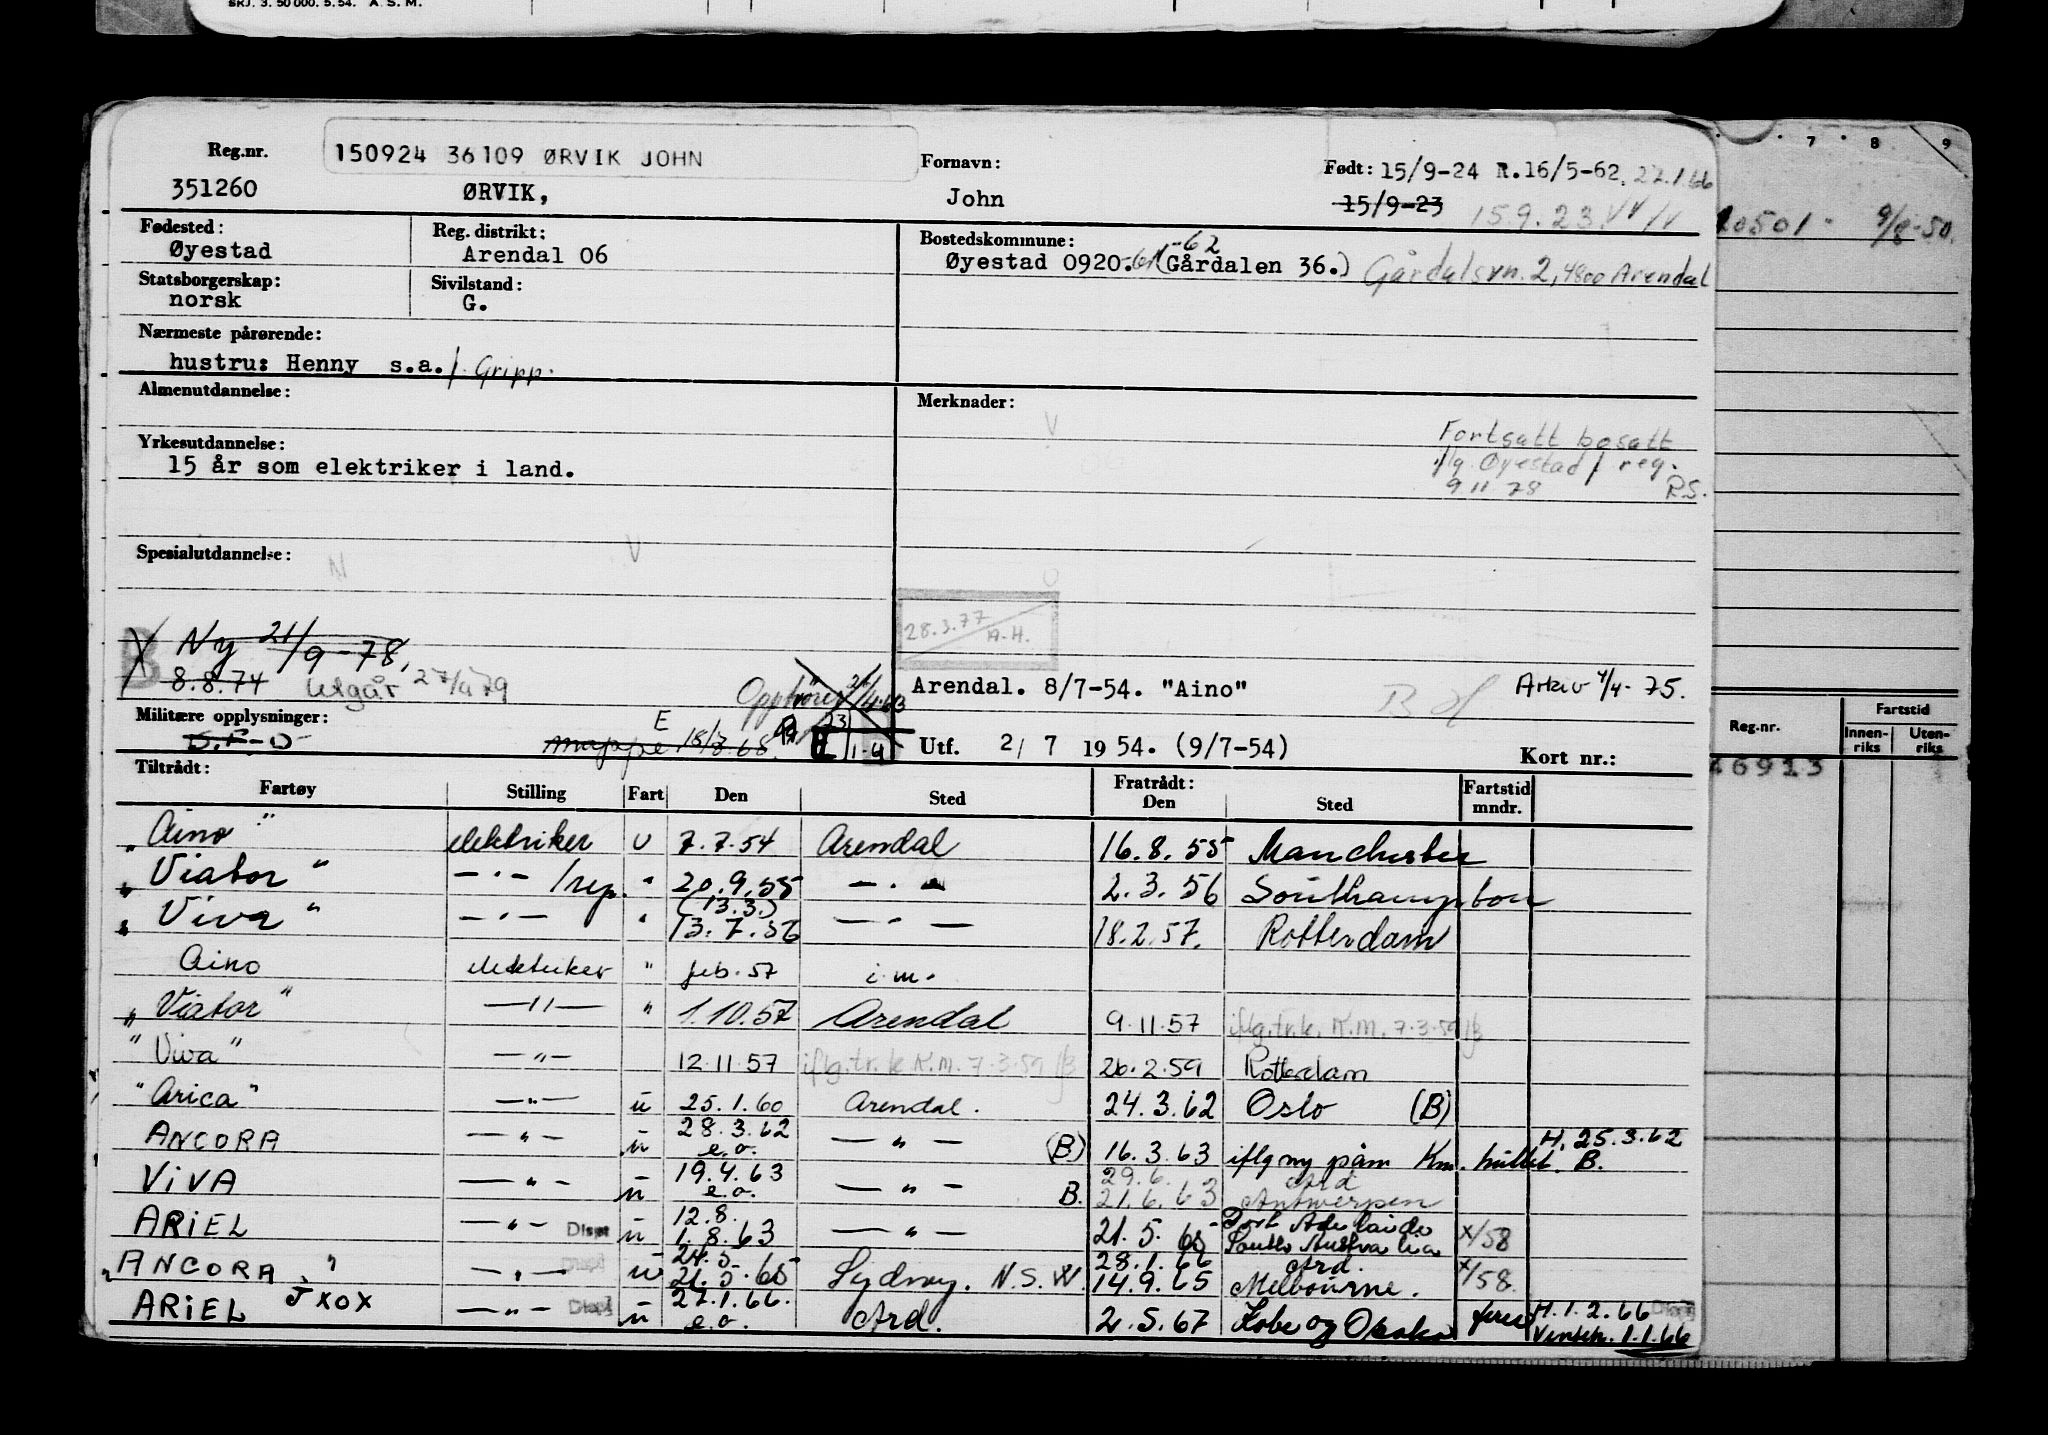 SRJ. 3. 50 000. 5. 54. A. S. M.
7 8 9
Reg.nr. 150924 36109 ØRVIK JOHN Fornavn: Født: 15/9-24 R.16/5-62, 27.1.66
351260 ØRVIK, John 15/9-23 15.9.23
Fødested: Reg. distrikt: Bostedskommune: -62
Øyestad Arendal 06 Øyestad 0920. (Gårdalen 36.) Gårdalsvn. 2, 4800 Arendal
10501 9/8-50.
Statsborgerskap: Sivilstand:
norsk G.
Nærmeste pårørende:
hustru: Henny s.a. f. Gripp.
Almenutdannelse: Merknader:
Fortsatt bosatt
Yrkesutdannelse: iflg. Øyestad f reg.
15 år som elektriker i land. 9 11 78 R.S.
Spesialutdannelse:
28.3.77
A.H.
B Ny 21/9-78,
8.8.74 Utgår 27/9 79 Arendal. 8/7-54. "Aino" Arkiv 4/4-75.
Militære opplysninger: E
mappe 18/3.68 1-4 Utf. 2/ 7 1954. (9/7-54) Kort nr.:
Reg.nr. Fartstid
Innen-riks Uten-riks
46913
Tiltrådt: Fratrådt:
Fartøy Stilling Fart Den Sted Den Sted Fartstid mndr.
"Aino" elektriker U 7.7.54 Arendal 16.8.55 Manchester
"Viator" —"— /rep. " 20.9.55 —"— 2.3.56 Southampton
"Viva" —"— " (13.3.) 13.7.56 —"— 18.2.57. Rotterdam
Aino elektriker " feb. 57 i.m.
"Viator" —"— " 1.10.57 Arendal 9.11.57 iflg.tr.k. K.M. 7.3.59
"Viva" —"— 12.11.57 iflg.tr.k K.M. 7.3.59 26.2.59 Rotterdam
"Arica" —"— u 25.1.60 Arendal. 24.3.62 Oslo (B)
ANCORA —"— u 28.3.62 e.o. —"— (B) 16.3.63 iflg ny påm Km. H. 25.3.62 B.
VIVA —"— u 19.4.63 e.o. —"— B. 29.6. 21.6.63 Ard Antwerpen
ARIEL —"— Disp u 12.8. 1.8.63 —"— 21.5.65 Port Adelaide South Australia x/58
"ANCORA" —"— u 24.5- 21.5.65 Sydney. N.S.W. 28.1.66 14.9.65 Ard. Melbourne. x/58.
ARIEL JXOX —"— Disp u 27.1.66. e.o. Ard. 2.5.67 Kobe og Osaka H. 1.2.66 1.1.66